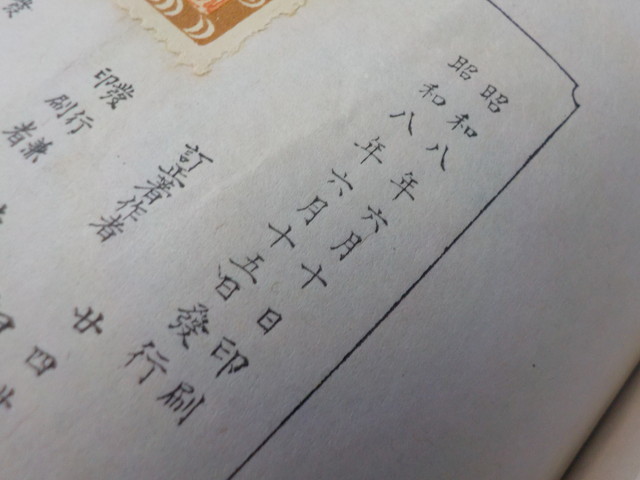 昭和八年六月十日印刷
昭和八年六月十五日發行
訂正著作者
發行兼
印刷者